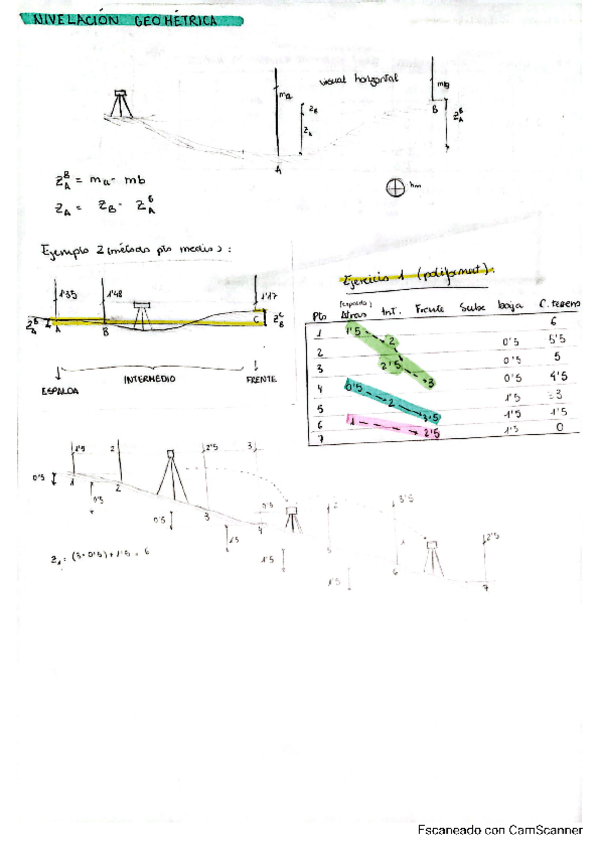 NIVELACIÓN GEOMÉTRICA
visual horizontal
ma
mb
Z_B
Z_A
B
Z_A^B
A
Z_A^B = ma - mb
Z_A = Z_B - Z_A^B
hm
Ejemplo 2 (método pto medio):
1'35
1'48
1'17
Z_A^B
A
B
C
Z_B^C
ESPALDA
INTERMEDIO
FRENTE
Ejercicio 1 (poliformat).
(espalda)
Pto Atras Int. Frente Sube baja C. terreno
1 1'5 6
2 2 0'5 5'5
3 2'5 0'5 5
4 0'5 3 0'5 4'5
5 2 1'5 3
6 1 3'5 1'5 1'5
7 2'5 1'5 0
1'5
2
2'5
3
0'5
1
0'5
2
0'5
3
0'5
4
1'5
2
1'5
5
3'5
1
1'5
6
2'5
7
Z_1 = (3·0'5)+1'5 = 6
Escaneado con CamScanner